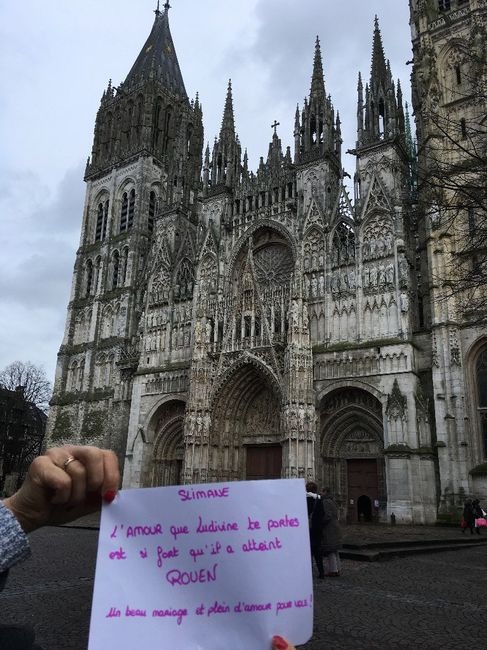 SLIMANE
L'AMOUR que Ludivine te portes
est si fort qu'il a atteint
ROUEN
Un beau mariage et plein d'amour pour vous !